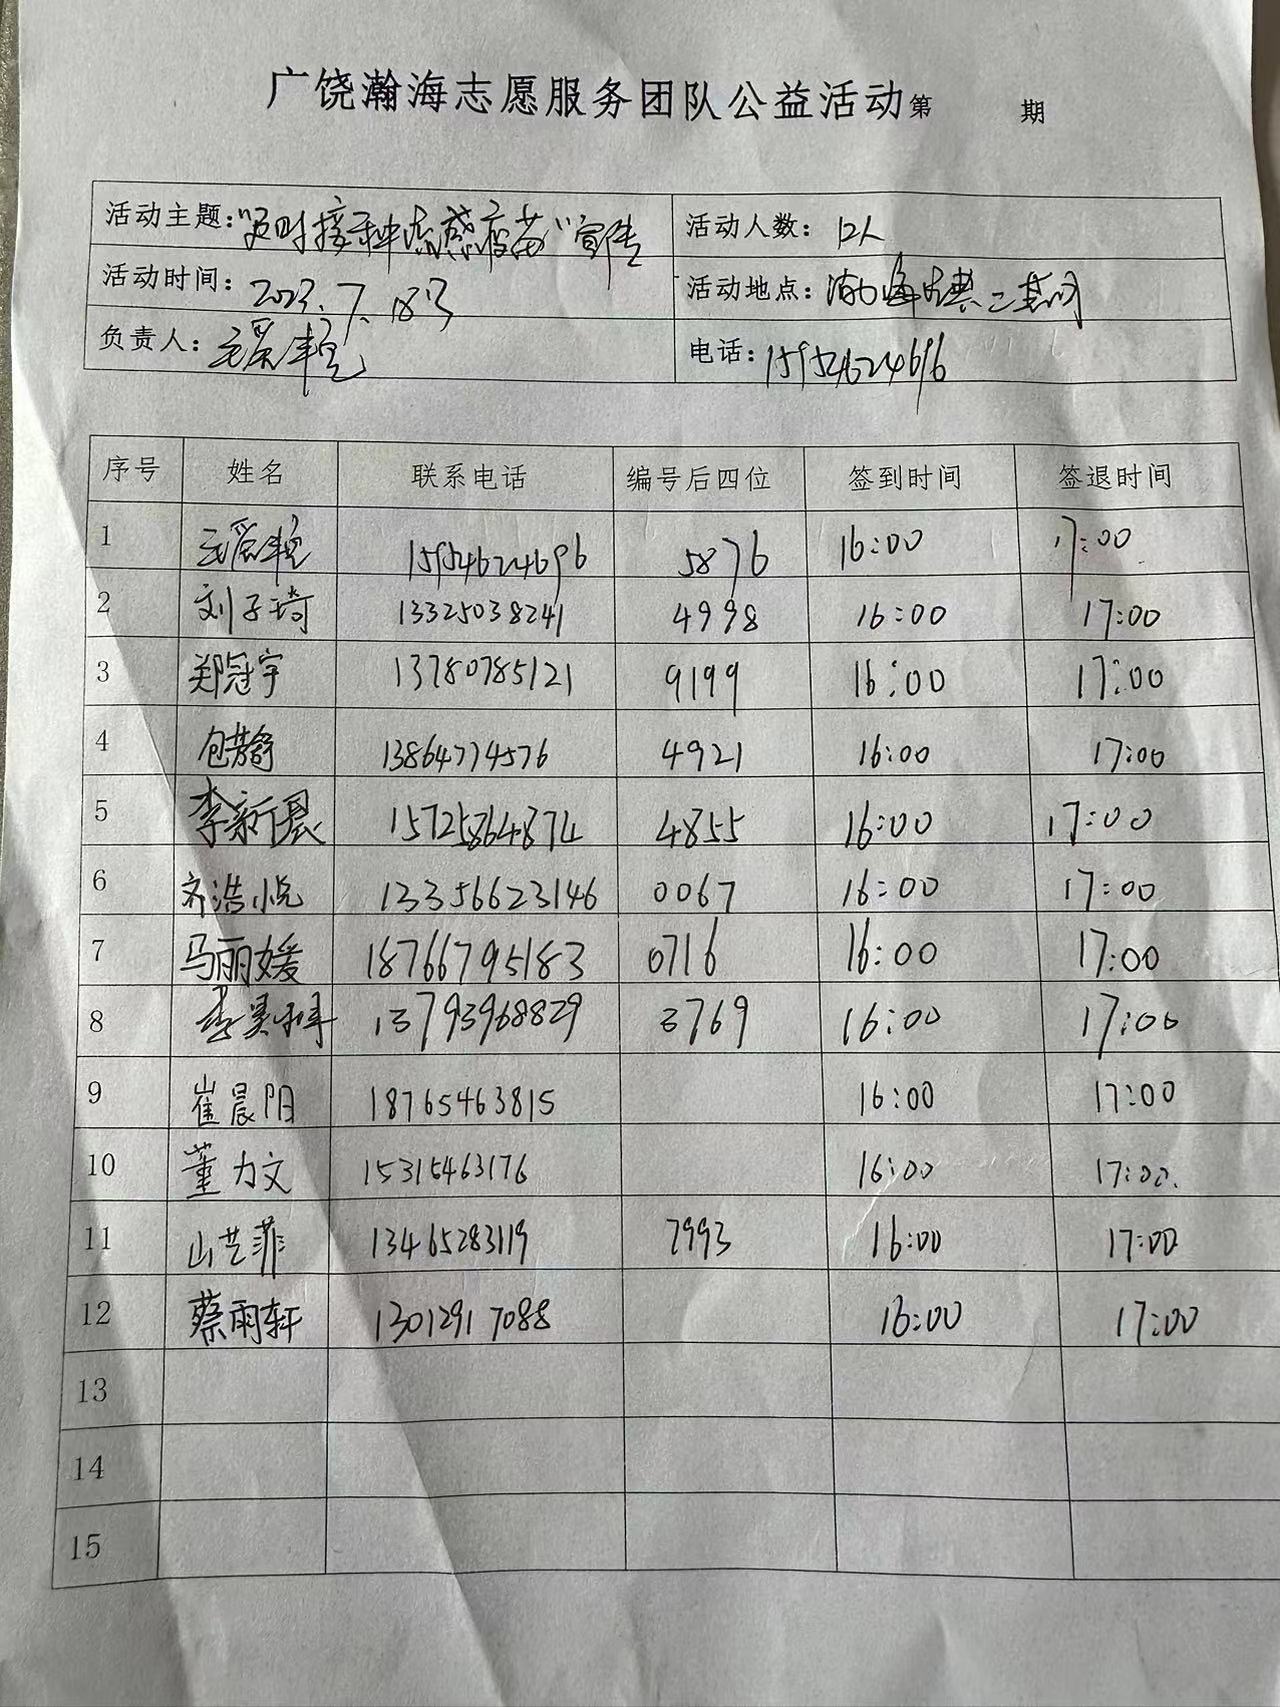 广饶瀚海志愿服务团队公益活动第 期
活动主题:"及时接种流感疫苗"宣传 活动人数: 12人
活动时间: 2023.7.18号 活动地点: 渤海
负责人: 电话: 15954624696
序号 姓名 联系电话 编号后四位 签到时间 签退时间
1 15954624696 5876 16:00 17:00
2 刘子琦 13325038241 4998 16:00 17:00
3 郑冠宇 13780785121 9199 16:00 17:00
4 包 13864774576 4921 16:00 17:00
5 李新晨 15725864874 4855 16:00 17:00
6 齐浩悦 13356623146 0067 16:00 17:00
7 马丽媛 18766795183 0716 16:00 17:00
8 李昊 13793968829 3769 16:00 17:00
9 崔晨阳 18765463815 16:00 17:00
10 董力文 15315463176 16:00 17:00.
11 山艺菲 13465283119 7993 16:00 17:00
12 蔡雨轩 13012917088 16:00 17:00
13
14
15